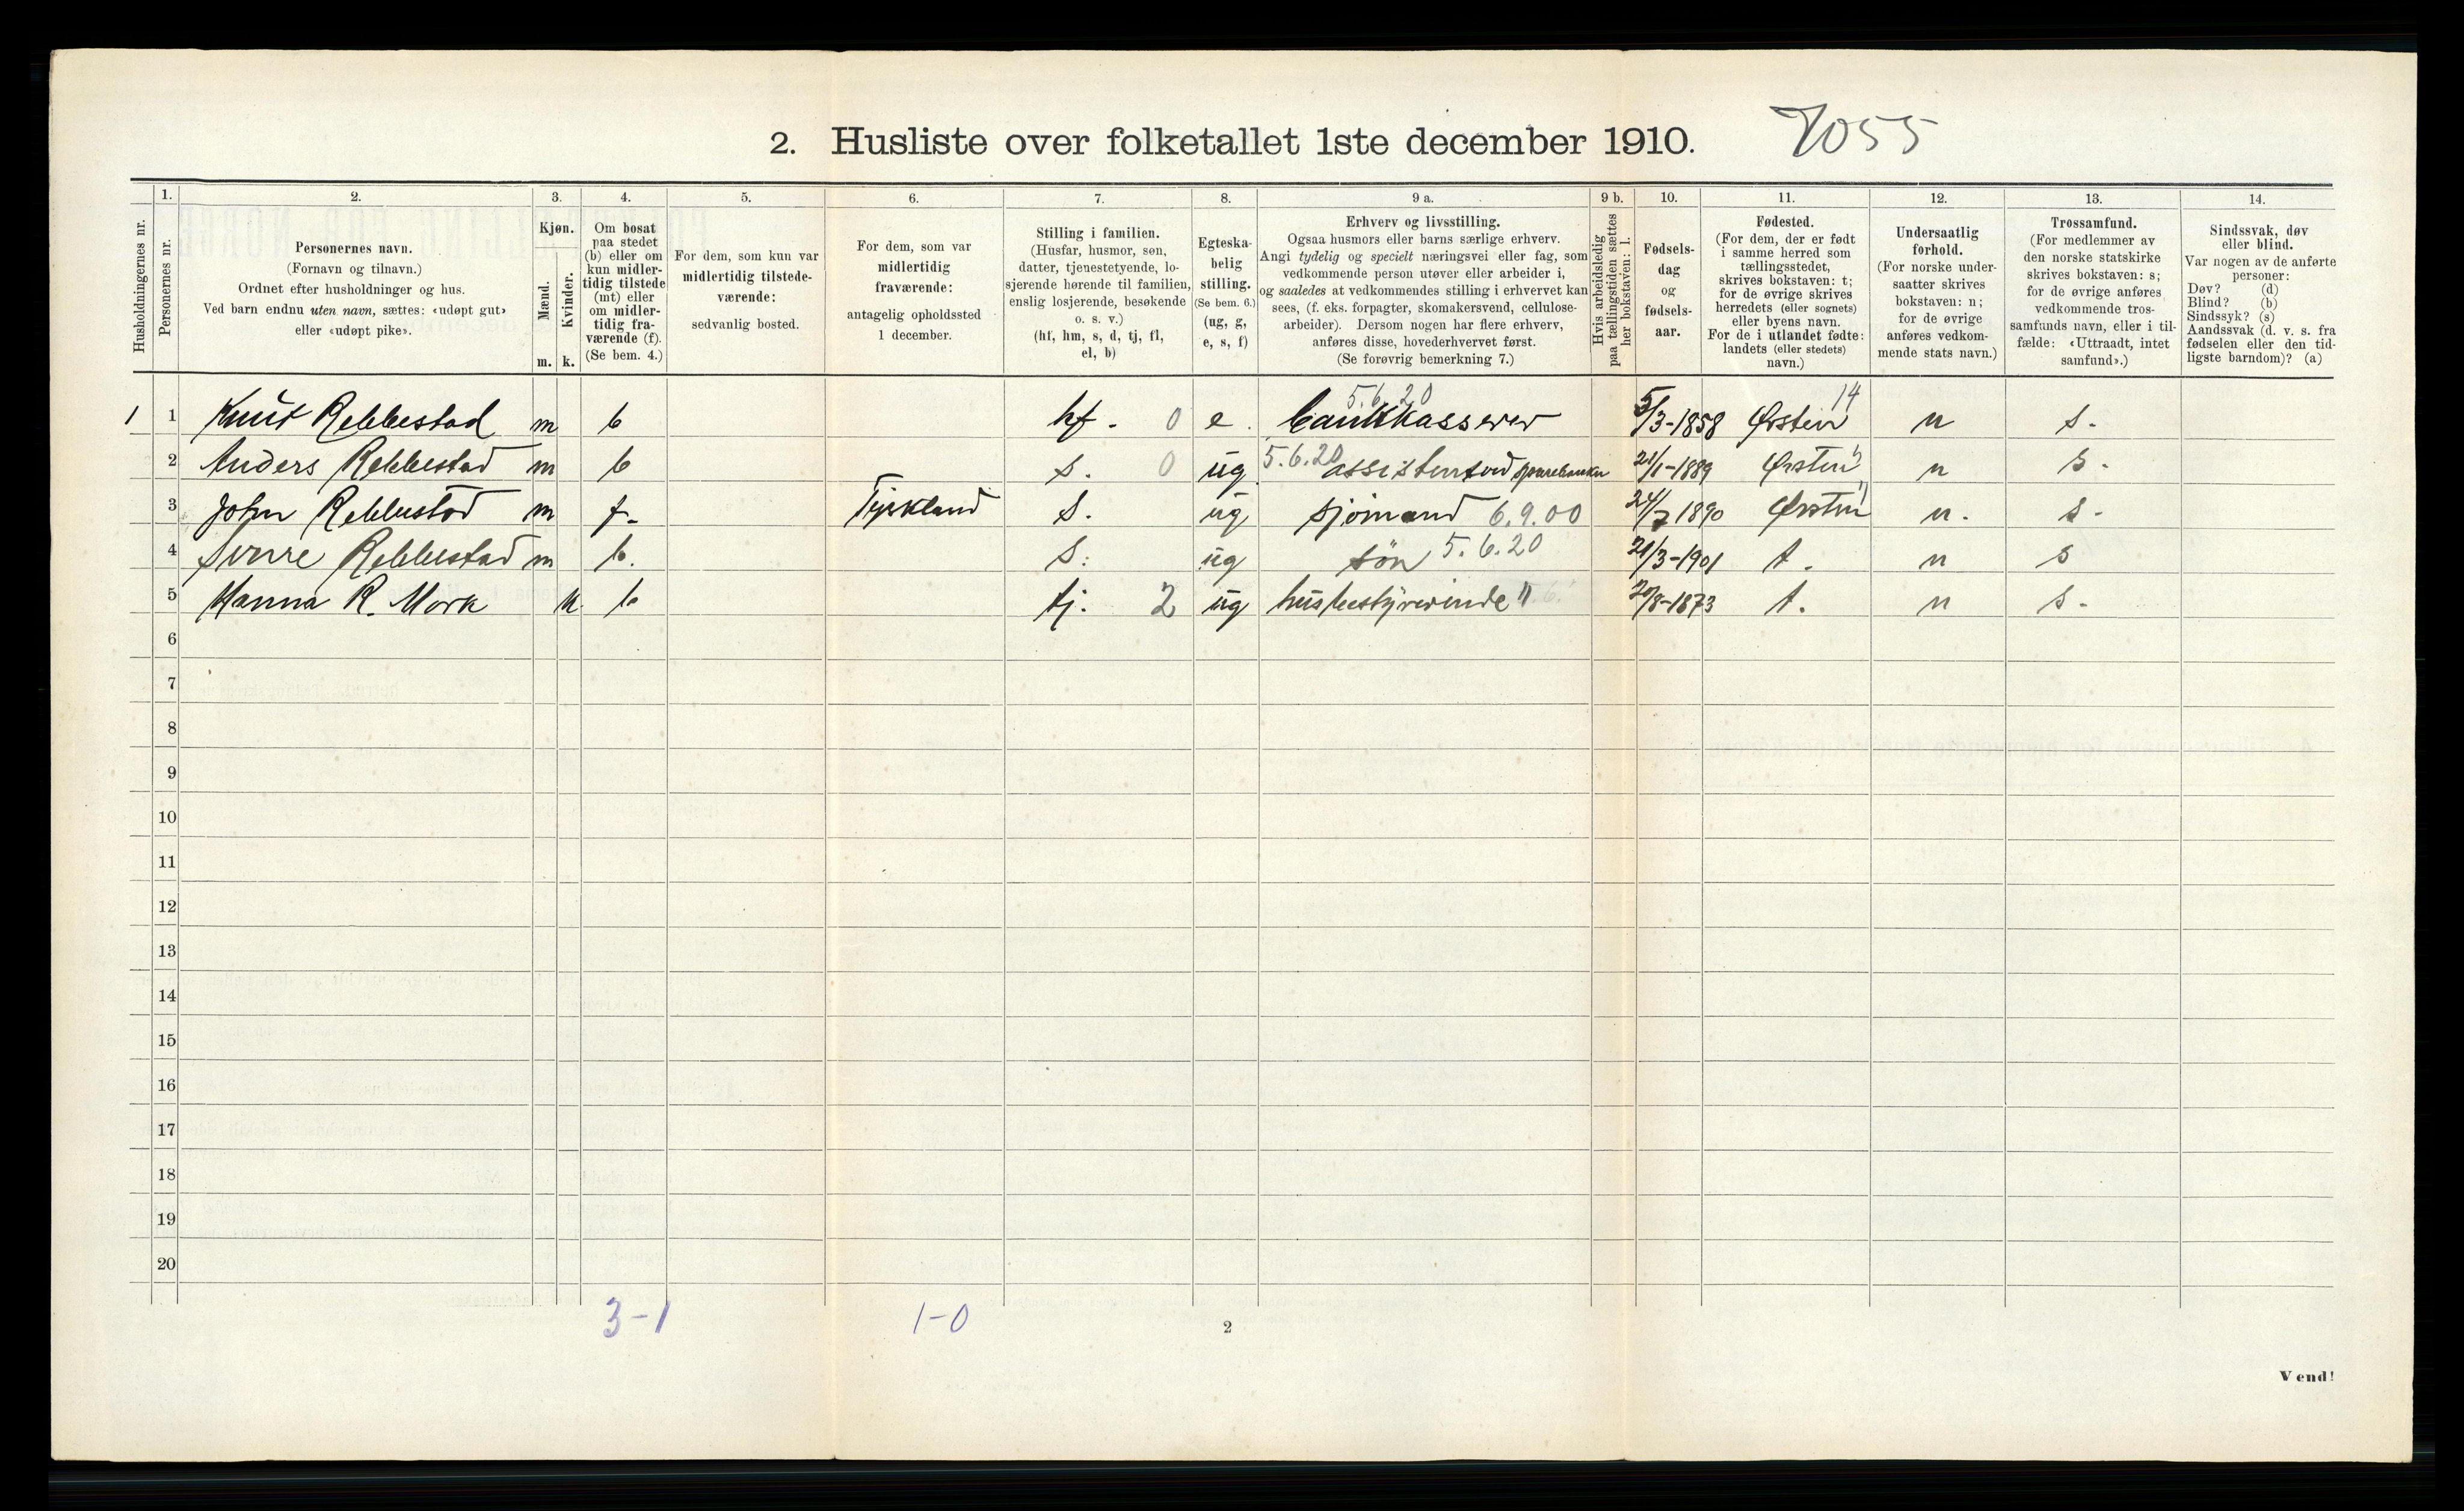 2. Husliste over folketallet 1ste december 1910. 7055
Husholdningernes nr.
1. Personernes nr.
2. Personernes navn.
(Fornavn og tilnavn.)
Ordnet efter husholdninger og hus.
Ved barn endnu uten navn, sættes: «udøpt gut»
eller «udøpt pike».
3. Kjøn.
Mænd. m.
Kvinder. k.
4. Om bosat
paa stedet
(b) eller om
kun midler-
tidig tilstede
(mt) eller
om midler-
tidig fra-
værende (f).
(Se bem. 4.)
5. For dem, som kun var
midlertidig tilstede-
værende:
sedvanlig bosted.
6. For dem, som var
midlertidig
fraværende:
antagelig opholdssted
1 december.
7. Stilling i familien.
(Husfar, husmor, søn,
datter, tjenestetyende, lo-
sjerende hørende til familien,
enslig losjerende, besøkende
o. s. v.)
(hf, hm, s, d, tj, fl,
el, b)
8. Egteska-
belig
stilling.
(Se bem. 6.)
(ug, g,
e, s, f)
9 a. Erhverv og livsstilling.
Ogsaa husmors eller barns særlige erhverv.
Angi tydelig og specielt næringsvei eller fag, som
vedkommende person utøver eller arbeider i,
og saaledes at vedkommendes stilling i erhvervet kan
sees, (f. eks. forpagter, skomakersvend, cellulose-
arbeider). Dersom nogen har flere erhverv,
anføres disse, hovederhvervet først.
(Se forøvrig bemerkning 7.)
9 b. Hvis arbeidsledig
paa tællingstiden sættes
her bokstaven: l.
10. Fødsels-
dag
og
fødsels-
aar.
11. Fødested.
(For dem, der er født
i samme herred som
tællingsstedet,
skrives bokstaven: t;
for de øvrige skrives
herredets (eller sognets)
eller byens navn.
For de i utlandet fødte:
landets (eller stedets)
navn.)
12. Undersaatlig
forhold.
(For norske under-
saatter skrives
bokstaven: n;
for de øvrige
anføres vedkom-
mende stats navn.)
13. Trossamfund.
(For medlemmer av
den norske statskirke
skrives bokstaven: s;
for de øvrige anføres
vedkommende tros-
samfunds navn, eller i til-
fælde: «Uttraadt, intet
samfund».)
14. Sindssvak, døv
eller blind.
Var nogen av de anførte
personer:
Døv? (d)
Blind? (b)
Sindssyk? (s)
Aandssvak (d. v. s. fra
fødselen eller den tid-
ligste barndom)? (a)
1 1 Knut Rebbestad m b hf. 0 e. 5.6.20 bankkasserer 5/3-1858 Ørsten 14 n s.
2 Anders Rebbestad m b s. 0 ug 5.6.20 assistent ved sparebanken 21/1-1889 Ørsten " n s.
3 John Rebbestad m f. Tyrkland s. ug sjømand 6.9.00 24/7 1890 Ørsten " n. s.
4 Sverre Rebbestad m b. s: ug søn 5.6.20 21/3-1901 t. n s
5 Hanna R. Mork k b tj. 2 ug husbestyrerinde " 20/8-1873 t. n s.
6
7
8
9
10
11
12
13
14
15
16
17
18
19
20
3-1 1-0
2
Vend!